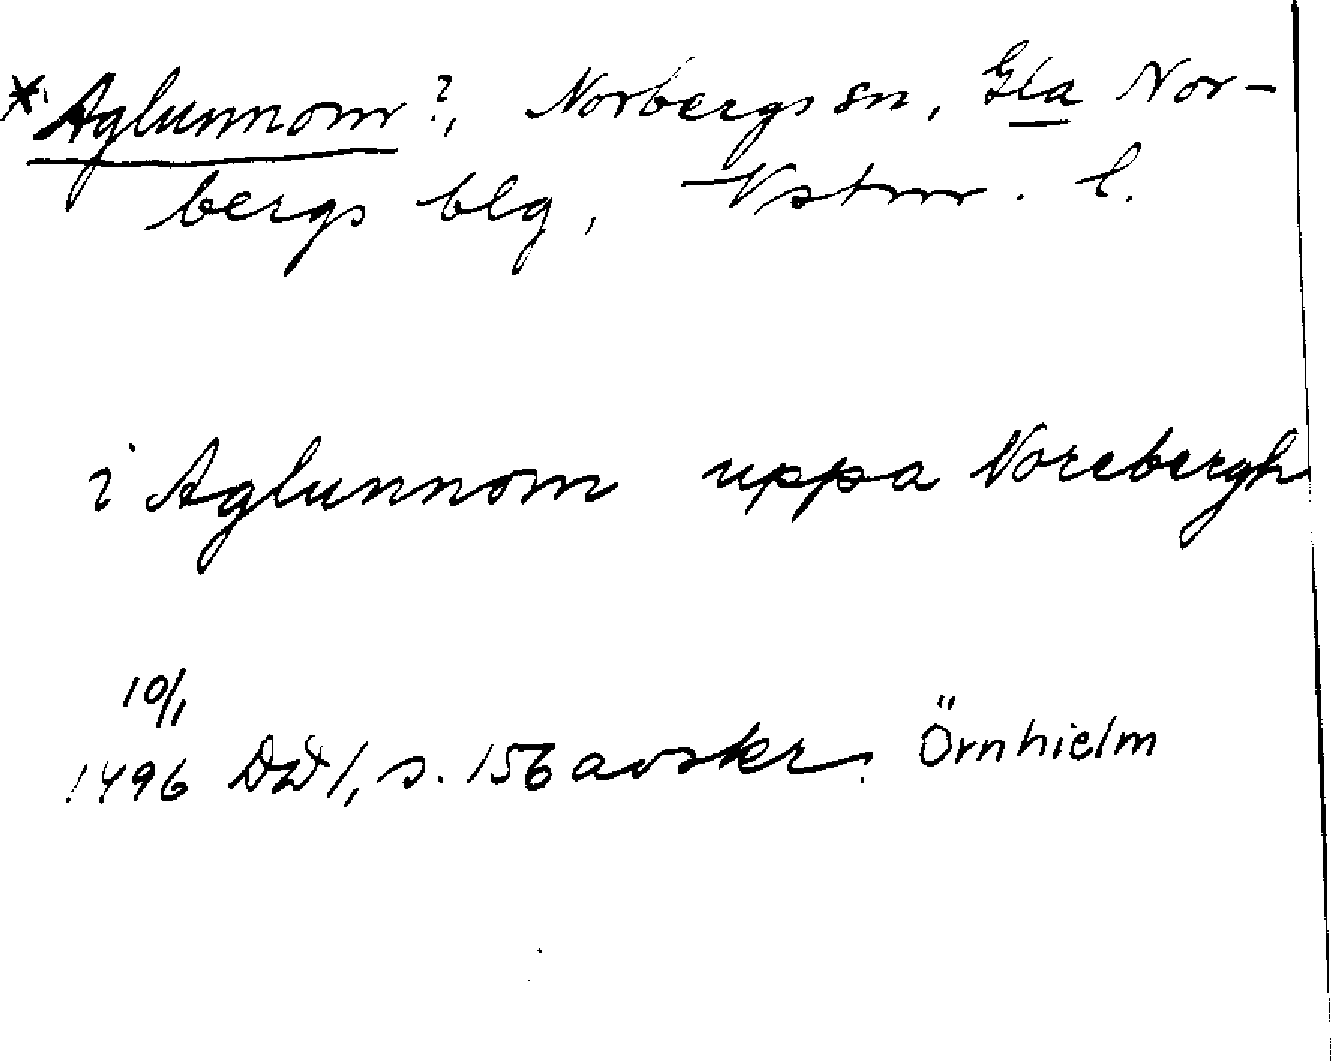 * Aglunnom?, Norbergs sn, Gla Nor-
bergs blg, Vstm. l.
i Aglunnom uppa Norebergh
10/1
1496 DD 1, s. 156 avskr. Örnhielm